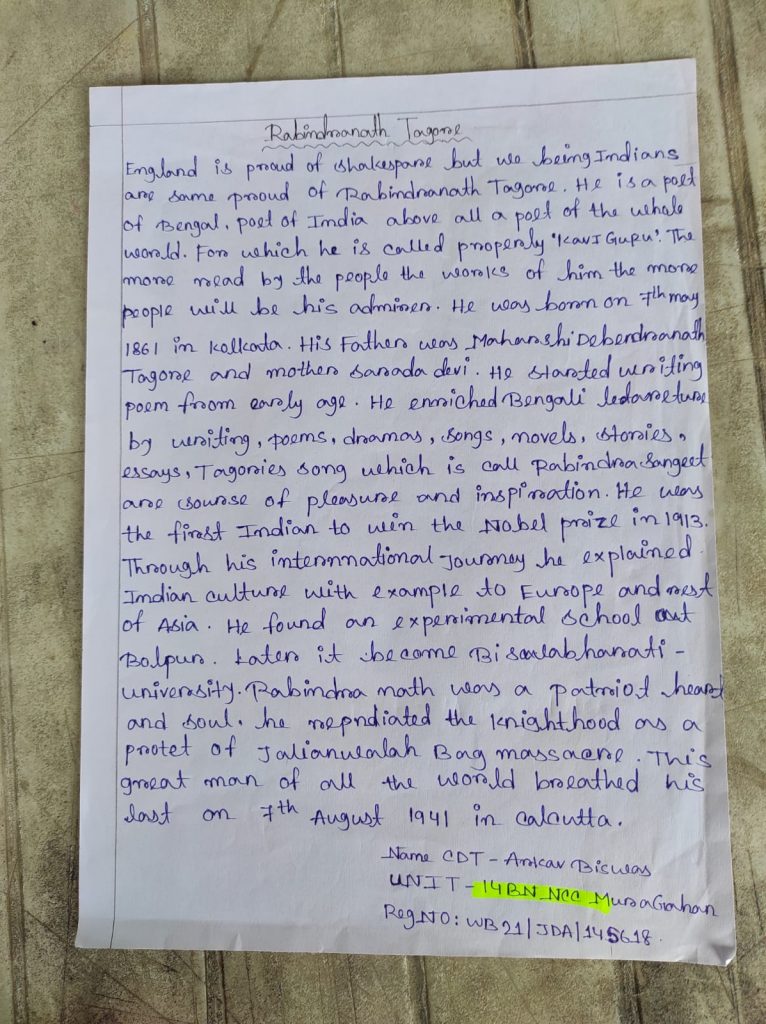 Rabindranath Tagore
England is proud of shakespare but we being Indians
are same proud of Rabindranath Tagore. He is a poet
of Bengal, poet of India above all a poet of the whole
world. For which he is called properly 'KAVI GURU'. The
more read by the people the works of him the more
people will be his admirer. He was born on 7th may
1861 in kolkata. His Father was Maharshi Debendranath
Tagore and mother sarada devi. He started writing
poem from early age. He enriched Bengali
by writing, poems, dramas, songs, novels, stories,
essays, Tagories song which is call Rabindra Sangeet
are sourse of pleasure and inspiration. He was
the first Indian to win the Nobel prize in 1913.
Through his internnational Journey he explained
Indian culture with example to Europe and rest
of Asia. He found an experimental school at
Bolpur. Later it become -
university. Rabindra nath was a patriot heart
and soul. he repndiated the knighthood as a
protet of Jalianwalah Bag massacre. This
great man of all the world breathed his
last on 7th August 1941 in calcutta.
Name CDT - Ankav Biswas
UNIT - 14 BN NCC
Reg NO: WB21/JDA/145618.